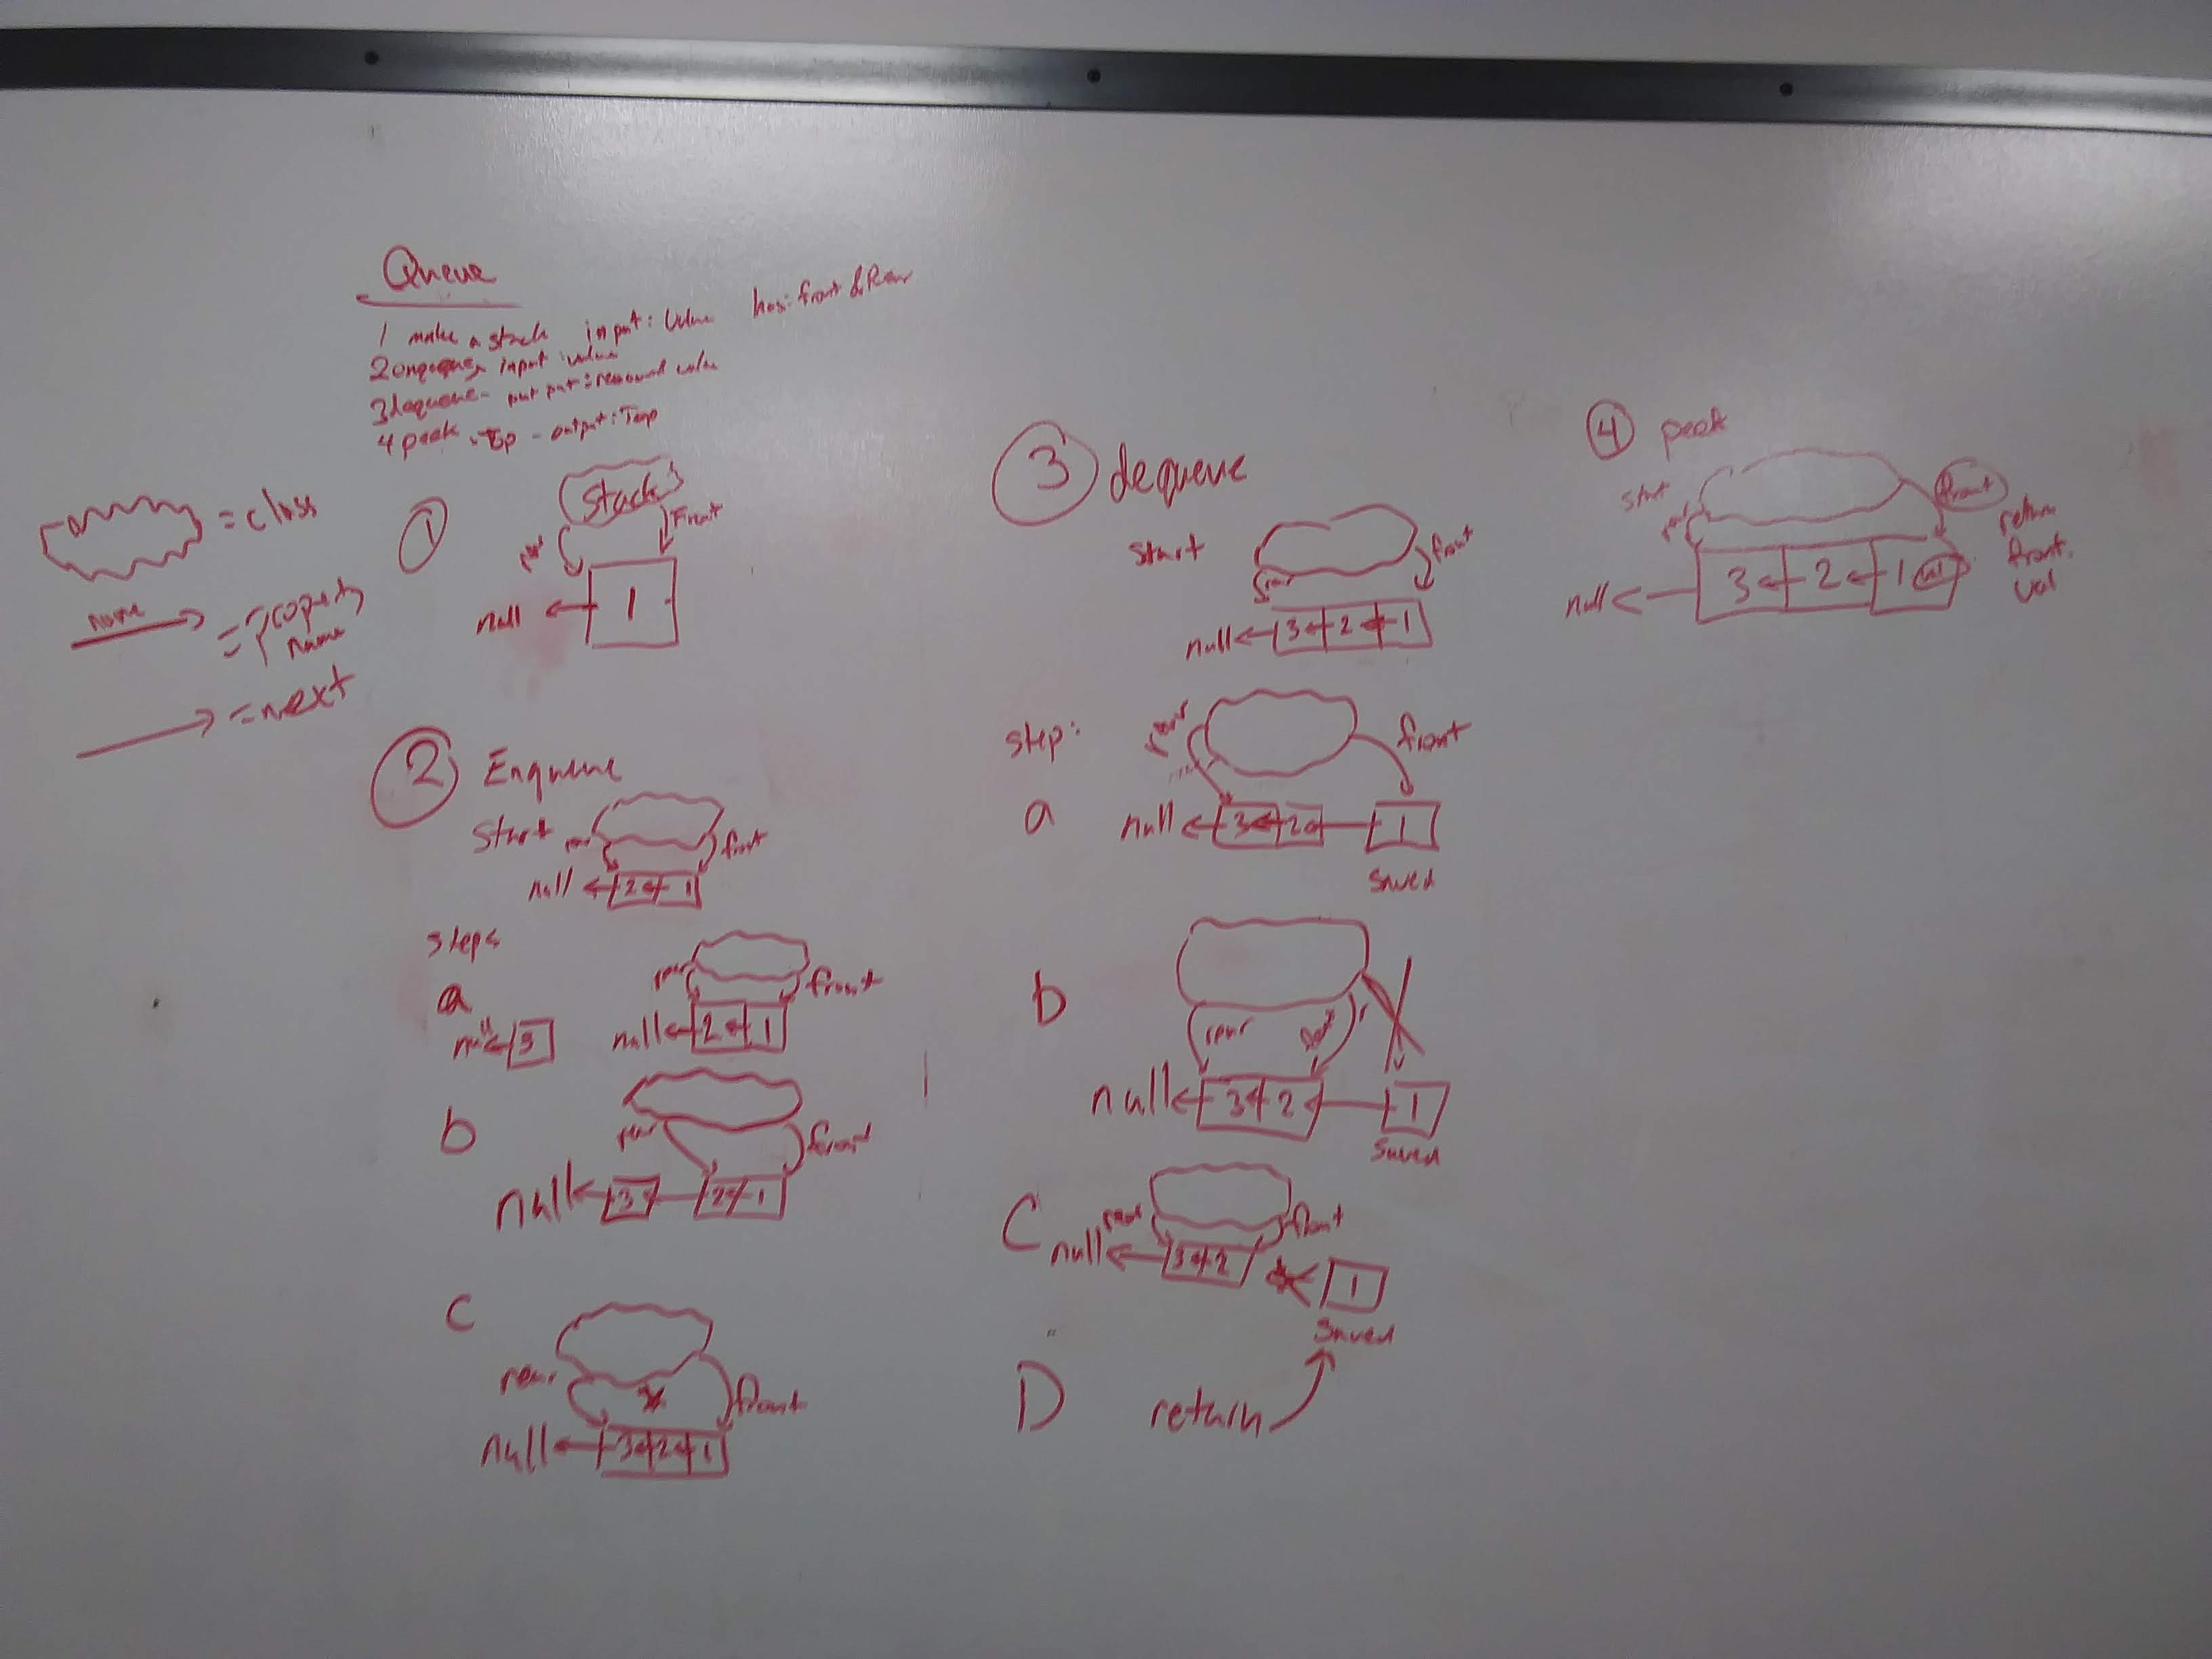 Queue
1 make a stack input: Value has: front & Rear
2 enqueue, input value
3 dequeue - out put: removed value
4 peek Top - output: Top
= class
name = property name
= next
1
Stack
rear Front
null 1
2 Enqueue
Start rear front
null 2 1
steps
a
rear front
null 3 null 2 1
b
rear front
null 3 2 1
c
rear front
null 3 2 1
3 dequeue
start front
rear
null 3 2 1
step: rear front
a null 3 2 1
saved
b
rear front
null 3 2 1
saved
C rear front
null 3 2 1
saved
D return
4 peek
start front
rear
return front. val
null 3 2 1 val